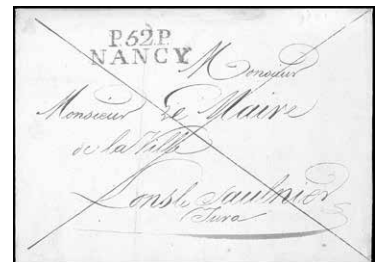 P.52.P.
NANCY
Monsieur
Monsieur Le Maire
de la Ville
Lons le Saulnier
Jura